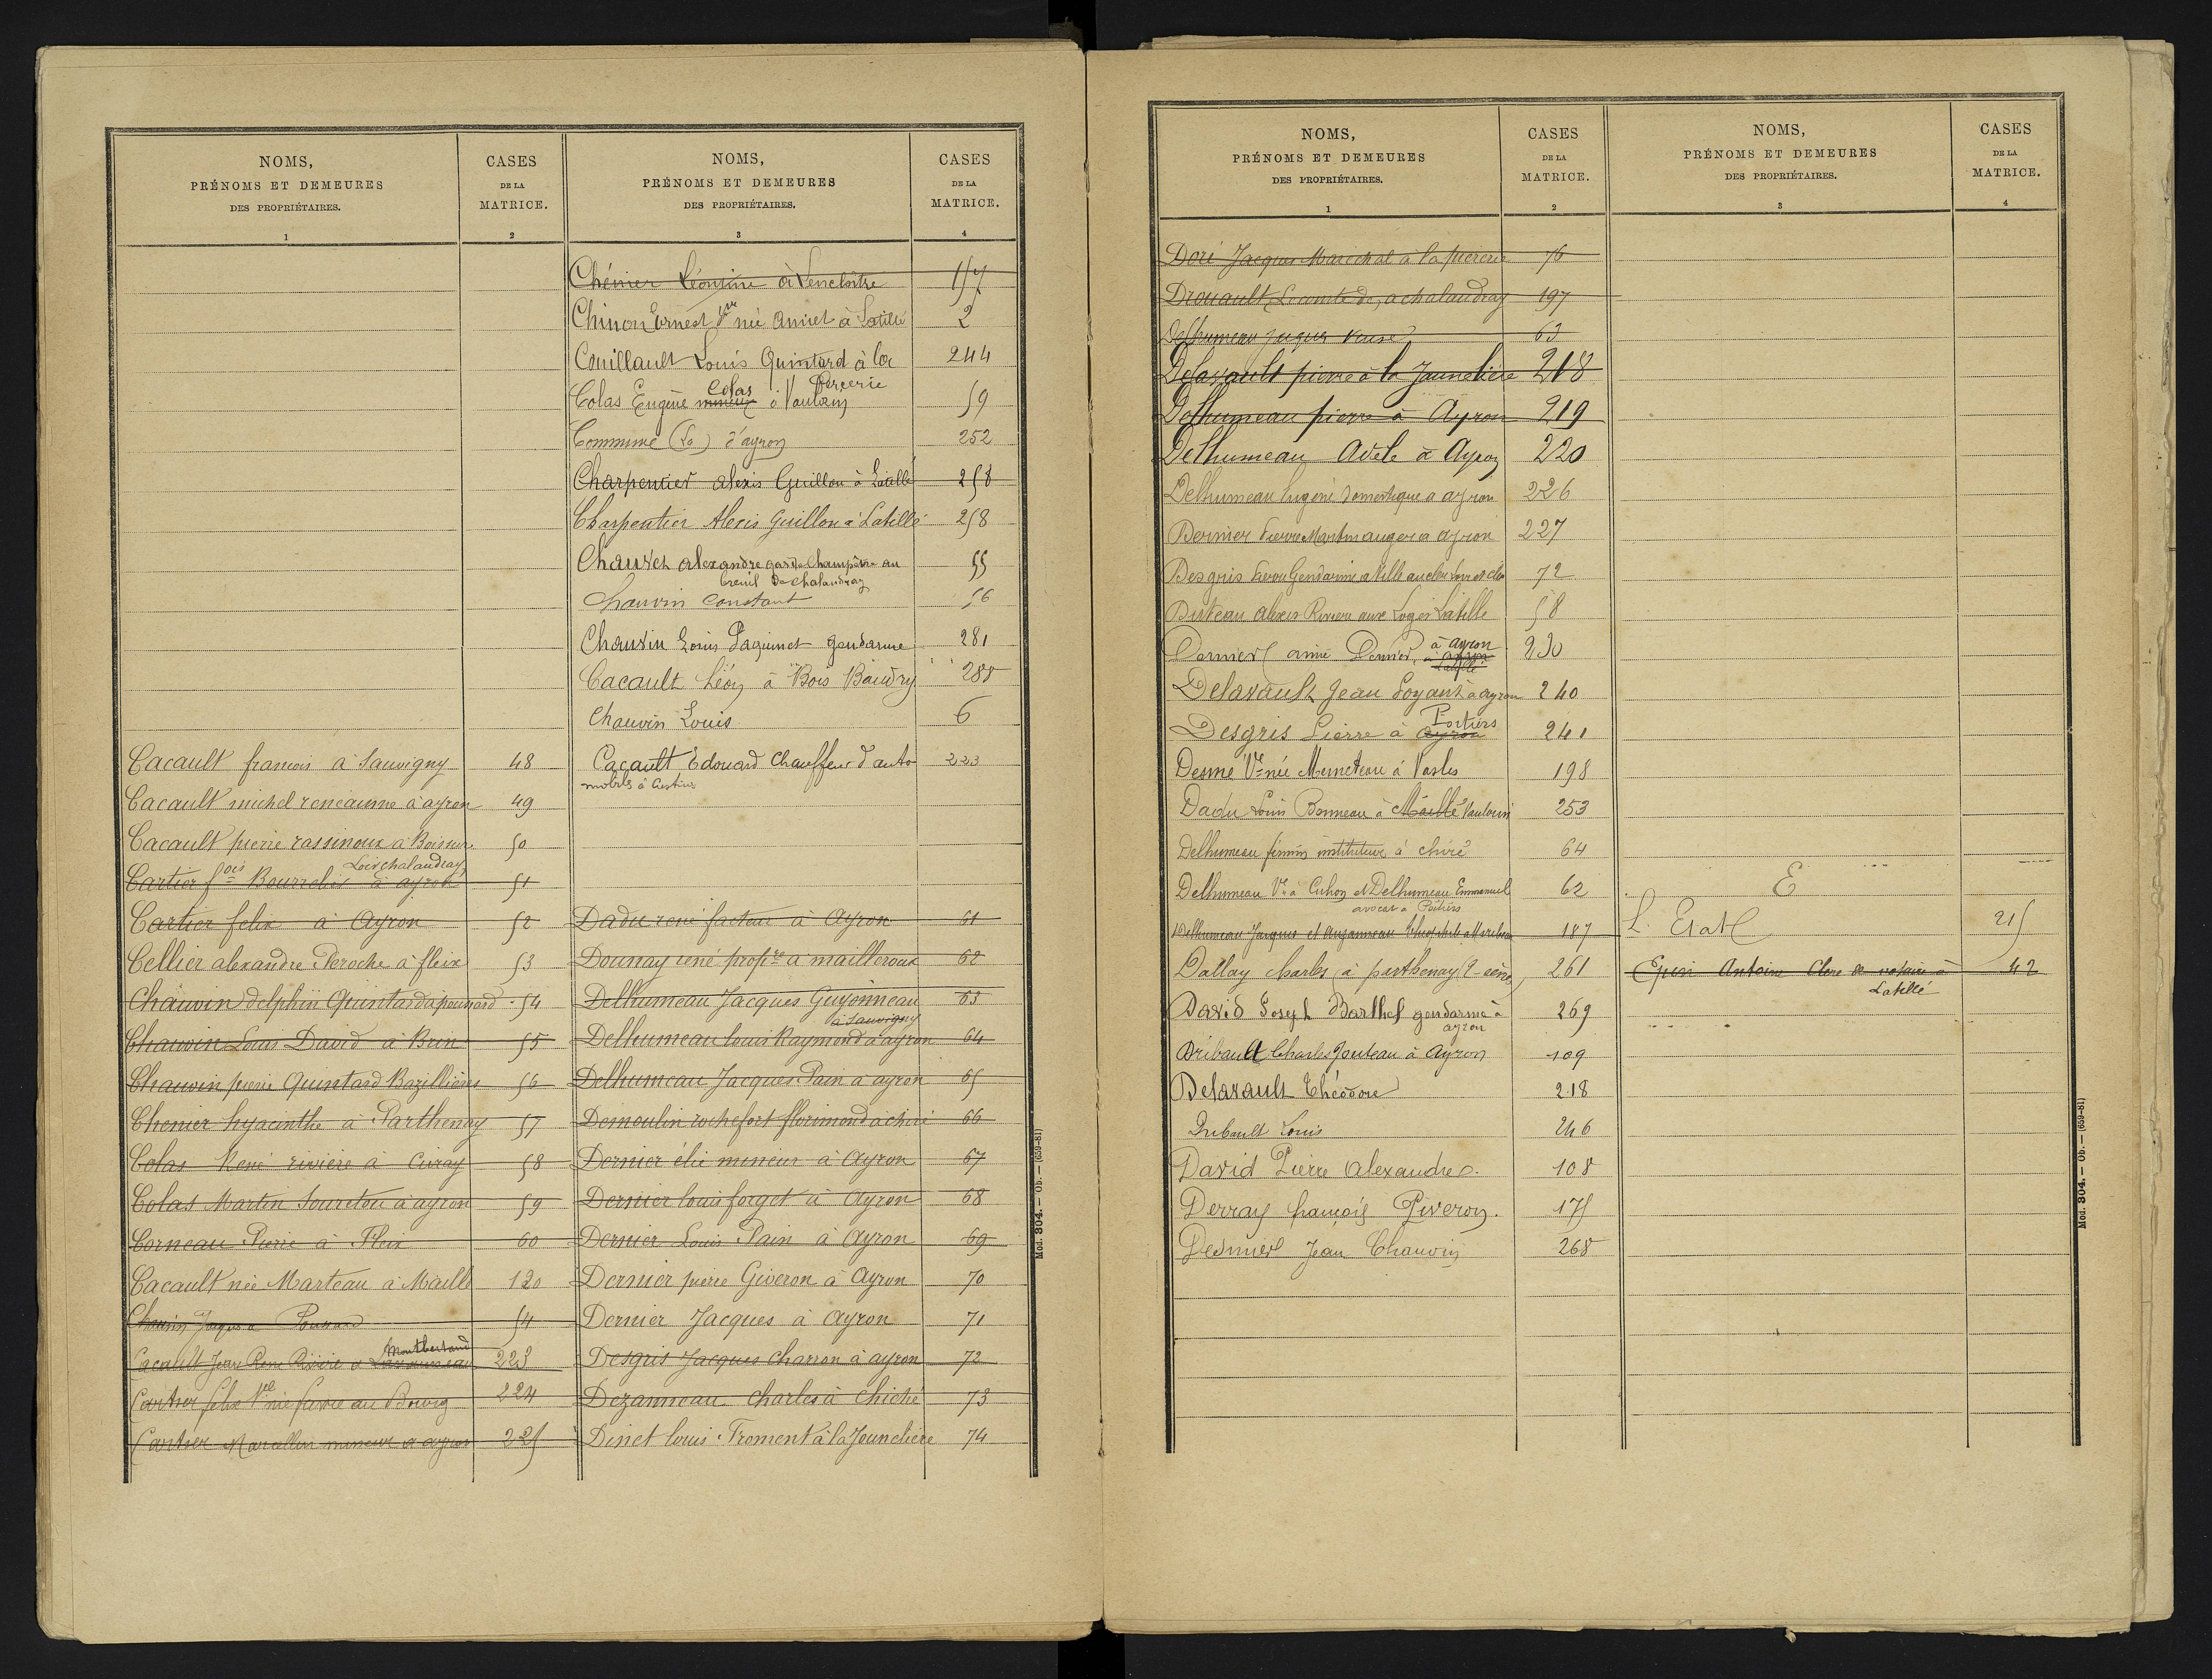 NOMS,
PRÉNOMS ET DEMEURES
DES PROPRIÉTAIRES.
1
CASES
DE LA
MATRICE.
2
Cacault francois à Sauvigny 48
Cacault michel renéaume à ayron 49
Cacault pierre rassinoux à Boissure 50
Loir chalandray
Cartier fois Bourrolier à ayron 51
Cartier felix à Ayron 52
Cellier alexandre Peroche à fleix 53
Chauvin delphin Quintard à pounard 54
Chauvin Louis David à Brin 55
Chauvin pierre Quintard Bazillières 56
Chenier hyacinthe à Parthenay 57
Colas René riviere à Civray 58
Colas Martin Soureton à ayron 59
Corneau Pierre à Fleix 60
Cacault née Marteau à Maillé 120
Chauvin Jacques a Pounard 54
Montbertand
Cacault Jean René Rivière a 223
Cartier felix Vve née fievre au Bourg 224
Cartier Marcellin mineur a ayron 225
NOMS,
PRÉNOMS ET DEMEURES
DES PROPRIÉTAIRES.
3
CASES
DE LA
MATRICE.
4
Chénier Léontine à Lencloître 157
Chinon Ernest Vve née Amiet à Latillé 2
Couillault Louis Quintard à la 244
Percerie
Colas
Colas Eugène mineur à Vaulorin 59
Commune (La) d'ayron 252
Charpentier alexis Guillon à Latillé 258
Charpentier Alexis Guillon à Latillé 258
Chauvet alexandre garde Champêtre au 55
breuil de chalandray
Chauvin Constant 56
Chauvin Louis Paquinet gendarme 281
Cacault Léon à Bois Baudry 288
Chauvin Louis 6
Cacault Edouard Chauffeur d'auto 223
mobiles à
Dadu rené facteur à Ayron 61
Dounay rené propre à mailleroux 62
Delhumeau Jacques Guyonneau 63
à Sauvigny
Delhumeau louis Raymond à ayron 64
Delhumeau Jacques Pain a ayron 65
Demoulin rochefort florimond à chiré 66
Dernier élie mineur à Ayron 67
Dernier louis forget à Ayron 68
Dernier Louis Pain à Ayron 69
Dernier pierre Giveron à Ayron 70
Dernier Jacques à Ayron 71
Desgris Jacques charron à ayron 72
Dezanneau Charles à Chiché 73
Dinet louis Froment à la Jounelière 74
Mod. 304. — Ob. — (659-81)
NOMS,
PRÉNOMS ET DEMEURES
DES PROPRIÉTAIRES.
1
CASES
DE LA
MATRICE.
2
Doré Jacques Maréchal à la piererie 76
Drouault, Lecomte de, a chalandray 197
Delhumeau Jacques 63
Delavault pierre à la Jaunelière 218
Delhumeau pierre à Ayron 219
Delhumeau Adèle à Ayron 220
Delhumeau Eugène domestique a ayron 226
Dernier Pierre Martin auger a ayron 227
Desgris Pierre Gendarme a Ville 72
Disteau alexis Riviere aux Loges Latille 58
à ayron
Dernier amie Dernier, à ayron 230
Latillé
Delavault Jean Loyant à ayron 240
Poitiers
Desgris Pierre à ayron 241
Desmé Vve née Memeteau à Vasles 198
Dadu Louis Bonneau à Maillé Vaulorin 253
Delhumeau firmin instituteur à chiré 64
Delhumeau Vve à Cuhon et Delhumeau Emmanuel 62
avocat à Poitiers
Delhumeau Jacques et Auzanneau 187
Dallay Charles (à parthenay 2-sèvres) 261
David Joseph Barthel gendarme à 269
ayron
Dribault Charles Jouteau à Ayron 109
Delavault Théodore 218
Dubault Louis 246
David Pierre Alexandre. 108
Derray françois Piveron. 175
Desmier Jean Chauvin 268
NOMS,
PRÉNOMS ET DEMEURES
DES PROPRIÉTAIRES.
3
CASES
DE LA
MATRICE.
4
E
L'Etat 215
Epin Antoine Clerc de notaire à 42
Latillé
Mod. 304. — Ob. — (659-81)